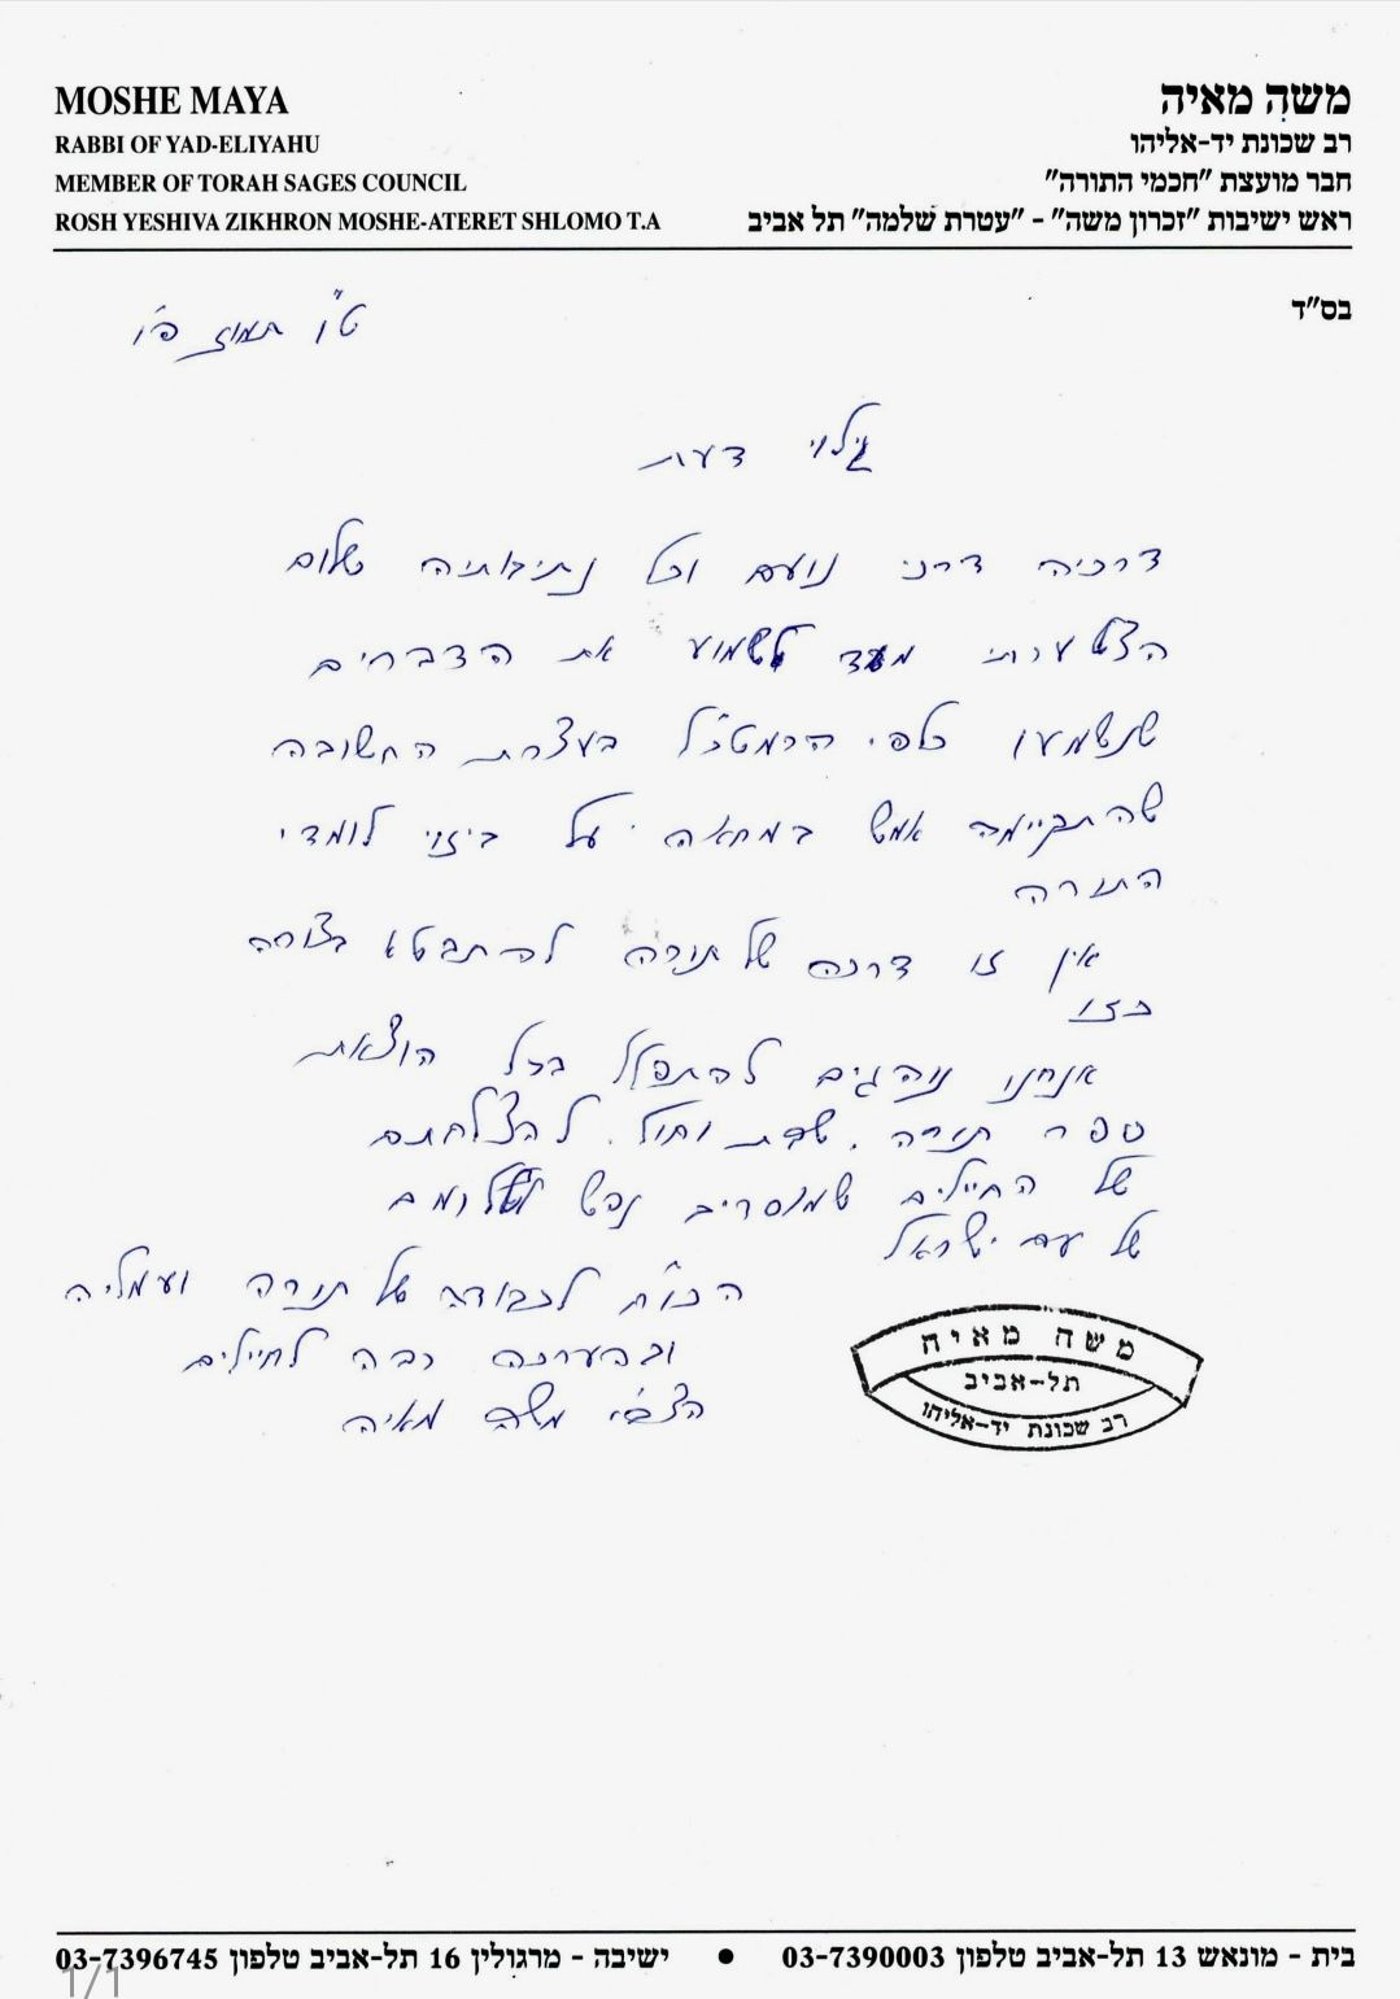 MOSHE MAYA
RABBI OF YAD-ELIYAHU
MEMBER OF TORAH SAGES COUNCIL
ROSH YESHIVA ZIKHRON MOSHE-ATERET SHLOMO T.A
משה מאיה
רב שכונת יד-אליהו
חבר מועצת "חכמי התורה"
ראש ישיבות "זכרון משה" - "עטרת שלמה" תל אביב
בס"ד
ט"ו תמוז פ"ו
גילוי דעת
דרכיה דרכי נועם וכל נתיבותיה שלום
הצטערתי מאד לשמוע את הדברים
שנשמעו כלפי הרמטכ"ל בעצרת החשובה
שהתקיימה אמש במחאה על ביזוי לומדי
התורה
אין זו דרכה של תורה להתבטא בצורה
כזו
אנחנו נוהגים להתפלל בכל הוצאת
ספר תורה, שבת וחול, להצלחתם
של החיילים שמוסרים נפש לשלומם
של עם ישראל
הכו"ח לכבודה של תורה ועמליה
ובהערכה רבה לחיילים
הצב"י משה מאיה
משה מאיה
תל-אביב
רב שכונת יד-אליהו
בית - מונאש 13 תל-אביב טלפון 03-7390003 • ישיבה - מרגולין 16 תל-אביב טלפון 03-7396745
1/1